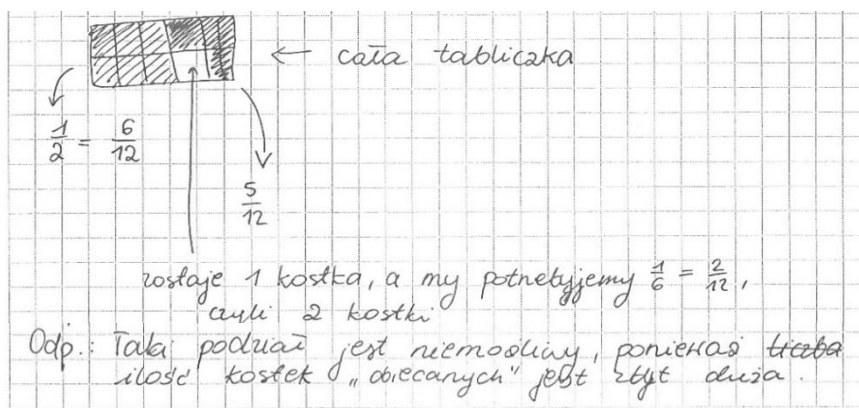 ← cała tabliczka
1/2 = 6/12
5/12
zostaje 1 kostka, a my potrzebujemy 1/6 = 2/12,
czyli 2 kostki
Odp.: Taki podział jest niemożliwy, ponieważ liczba
ilość kostek „obiecanych” jest zbyt duża.